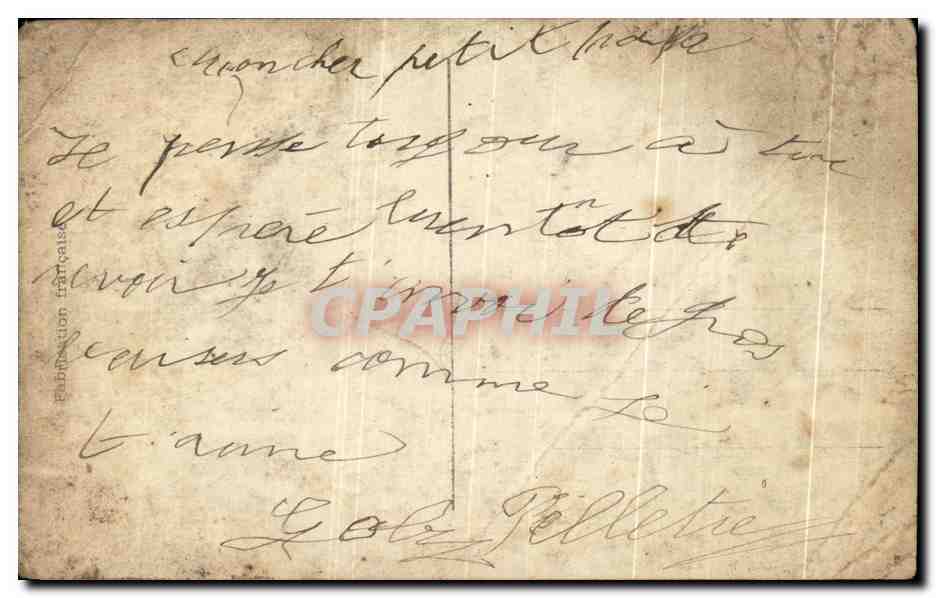 mon cher petit papa
Je pense toujour à toi
et espère bientôt te
revoir je t'invoi de gros
baisers comme je
t aime
Gaby Pelletier
Fabrication française
CPAPHIL